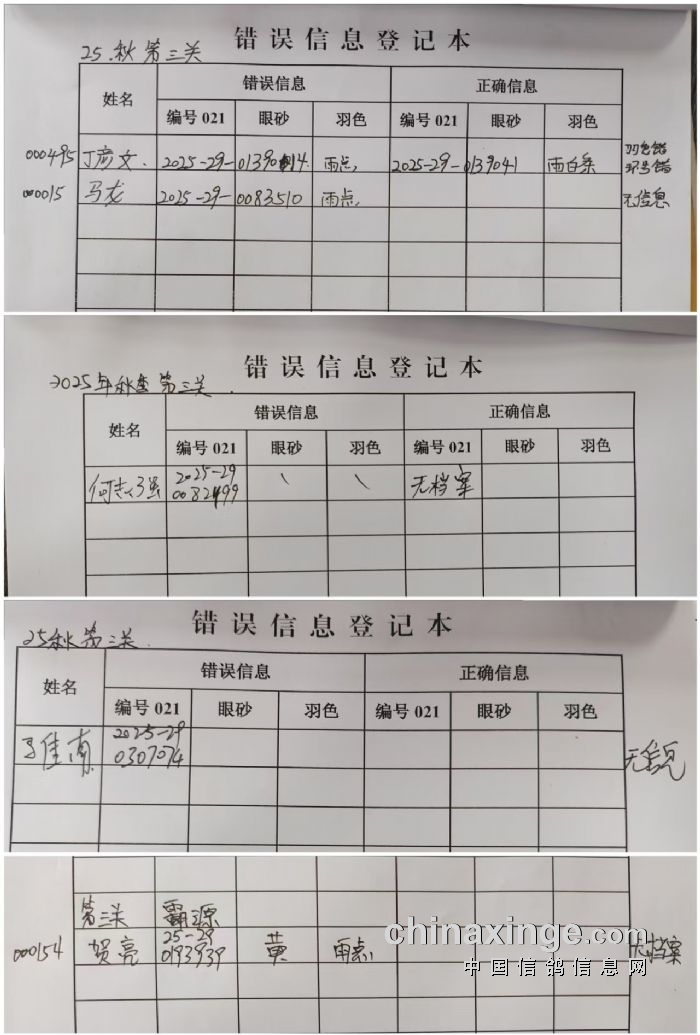 错误信息登记本
25.秋 第三关
姓名 错误信息 正确信息
编号 021 眼砂 羽色 编号 021 眼砂 羽色
000495 丁彦文. 2025-29-0139014. 雨点, 2025-29-0139041 雨白条 羽色错
环号错
000015 马龙 2025-29-0083510 雨点, 无信息
错误信息登记本
2025年秋季 第三关.
姓名 错误信息 正确信息
编号 021 眼砂 羽色 编号 021 眼砂 羽色
何志强 2025-29 \ \ 无档案
0082499
错误信息登记本
25秋 第三关.
姓名 错误信息 正确信息
编号 021 眼砂 羽色 编号 021 眼砂 羽色
佳南 2025-29
0307074
第三关 霸源
000154 贺亮 25-29 黄 雨点, 档案
0193939
chinaxinge.com
中国信鸽信息网